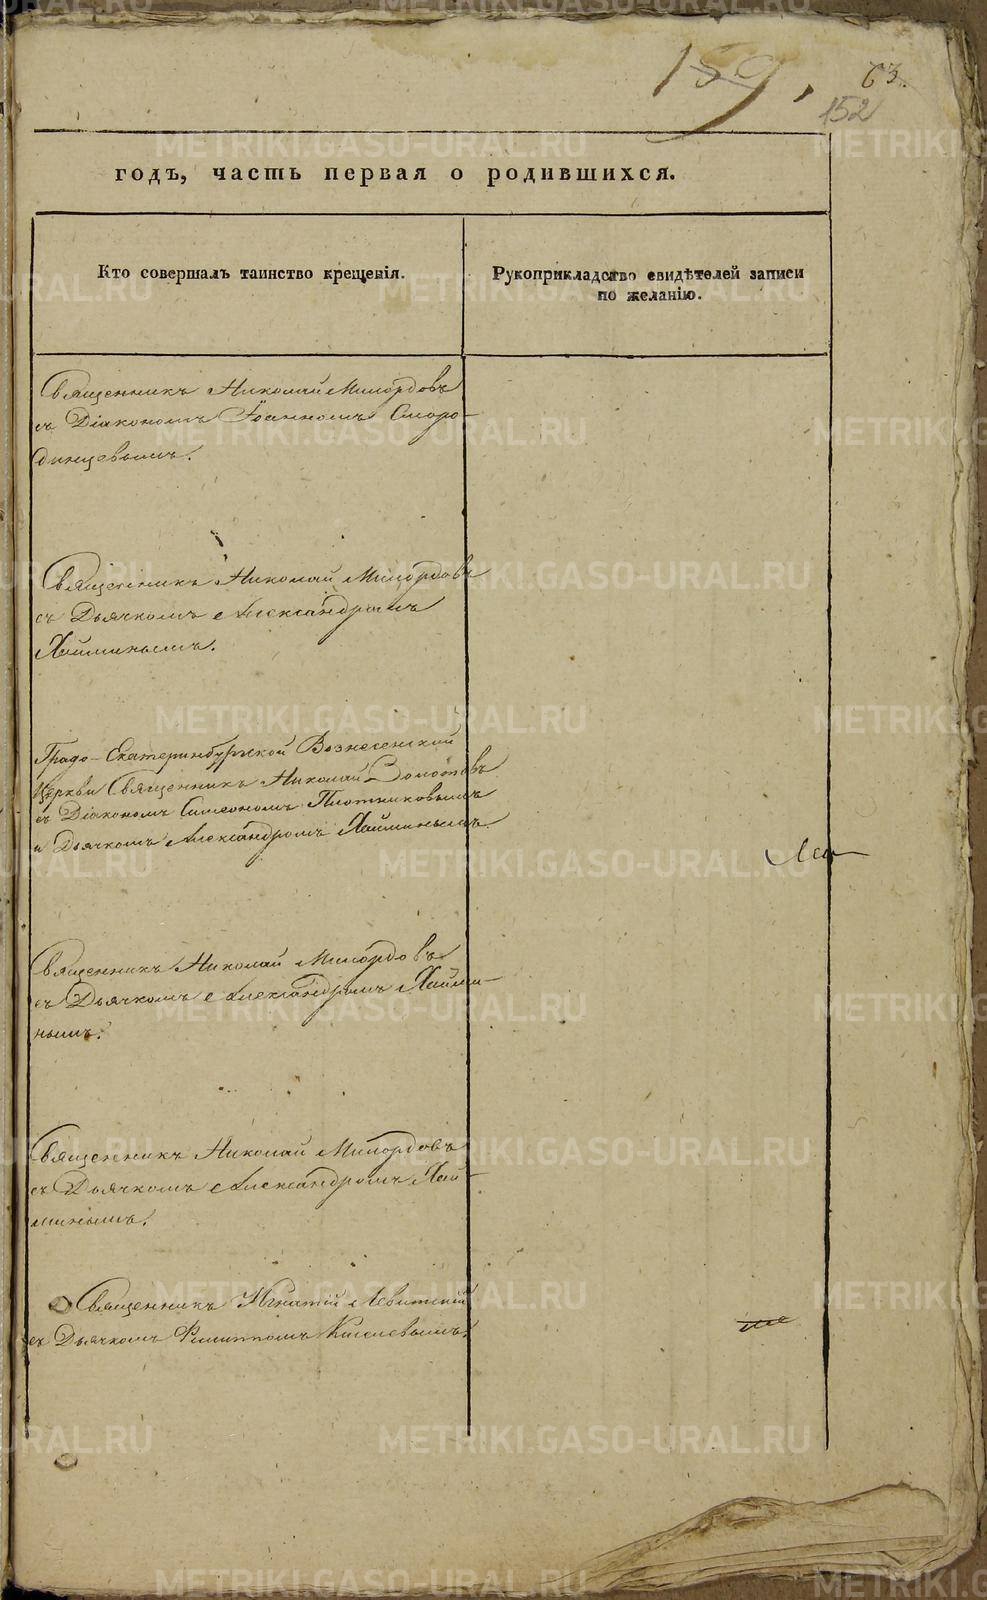 159.
63.
152
годъ, часть первая о родившихся.
Кто совершалъ таинство крещенія.
Рукоприкладство свидѣтелей записи
по желанію.
Священникъ Николай Милордовъ
съ Діакономъ Іоанномъ Сморо-
динцевымъ.
Священникъ Николай Милордовъ
съ Дьячкомъ Александромъ
Хайминымъ.
Градо-Екатеринбургской Вознесенской
Церкви Священникъ Николай Золотовъ
съ Діакономъ Симеономъ Плотниковымъ
и Дьячкомъ Александромъ Хайминымъ.
Священникъ Николай Милордовъ
съ Дьячкомъ Александромъ Хайми-
нымъ.
Священникъ Николай Милордовъ
съ Дьячкомъ Александромъ Хай-
минымъ.
Священникъ Игнатій Левитскій
съ Дьячкомъ Филиппомъ Киселевымъ.
METRIKI.GASO-URAL.RU